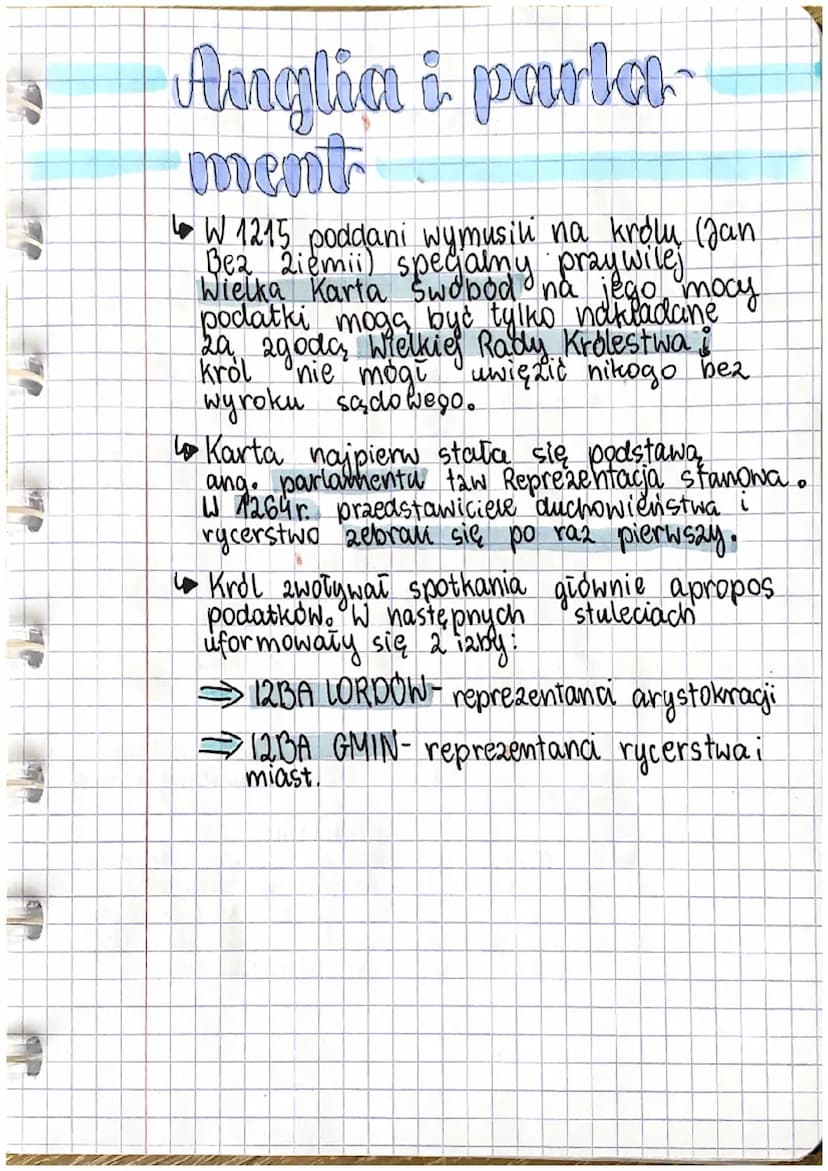 Anglia i parla-
ment
↳ W 1215 poddani wymusili na królu (Jan
Bez Ziemii) specjalny przywilej
Wielka Karta Swobód na jego mocy
podatki mogą być tylko nakładane
za zgodą Wielkiej Rady Królestwa i
król nie mógł uwięzić nikogo bez
wyroku sądowego.
↳ Karta najpierw stała się podstawą
ang. parlamentu tzw Reprezentacja stanowa.
W 1264r. przedstawiciele duchowieństwa i
rycerstwo zebrali się po raz pierwszy.
↳ Król zwoływał spotkania głównie apropos
podatków. W następnych stuleciach
uformowały się 2 izby:
⇒ IZBA LORDÓW- reprezentanci arystokracji
⇒ IZBA GMIN- reprezentanci rycerstwa i
miast.